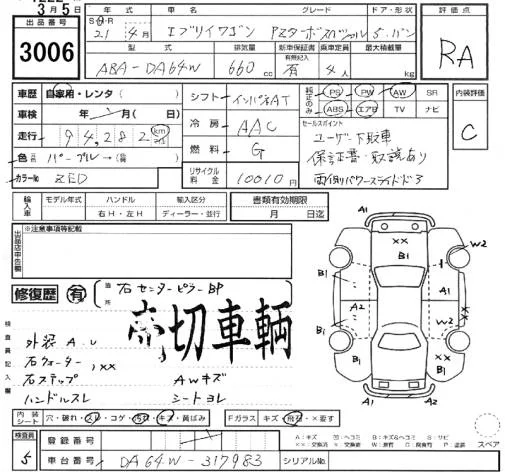 3月5日
出品番号
3006
車名 グレード ドア・形状 評価点
21年4月 エブリイワゴン PZターボスペシャル 5.バン
RA
型式 排気量 新車保証書 乗車定員 最大積載量
ABA-DA64W 660cc 有 4人 kg
車歴 自家用・レンタ( )
シフト インパネAT
純正のみ PS PW AW SR
ABS エアB TV ナビ
内装評価
C
車検 年 月( 日)
冷房 AAC
セールスポイント
ユーザー下取車
保証書・取説あり
両側パワースライドドア
走行 94,282 km
燃料 G
色 パープル→( )
リサイクル料金 10010円
カラーNo ZED
輸入車 モデル年式 ハンドル 輸入区分 書類有効期限
右H・左H ディーラー・並行 月 日迄
出品店申告欄
※注意事項等記載
修復歴 有
箇所 右センターピラーBP
売切車両
検査員記入欄
外装A.U
右クォーター,××
右ステップ AWキズ
ハンドルスレ シートヨレ
A1 ×× B1 W2
B1 A1
A2
B1 W2
××
A1 A1
内装シート 穴・破れ・スレ・コゲ・汚れ・キズ・黄ばみ
Fガラス キズ・飛石・×要す
検査員
5
登録番号
車台番号 DA64W-317983
シリアルNo.
スペア